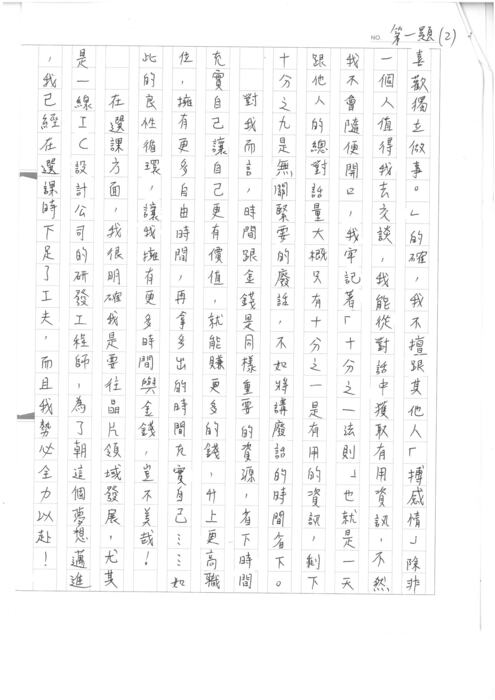 NO. 第一題(2)
喜歡獨立做事。」的確，我不擅跟其他人「搏感情」除非
一個人值得我去交談，我能從對話中獲取有用資訊，不然
我不會隨便開口，我牢記著「十分之一法則」也就是一天
跟他人的總對話量大概只有十分之一是有用的資訊，剩下
十分之九是無關緊要的廢話，不如將講廢話的時間省下。
對我而言，時間跟金錢是同樣重要的資源，省下時間
充實自己讓自己更有價值，就能賺更多的錢，升上更高職
位，擁有更多自由時間，再拿多出的時間充實自己……如
此的良性循環，讓我擁有更多時間與金錢，豈不美哉！
在選課方面，我很明確我是要往晶片領域發展，尤其
是一線ＩＣ設計公司的研發工程師，為了朝這個夢想邁進
，我己經在選課時下足了工夫，而且我勢必全力以赴！